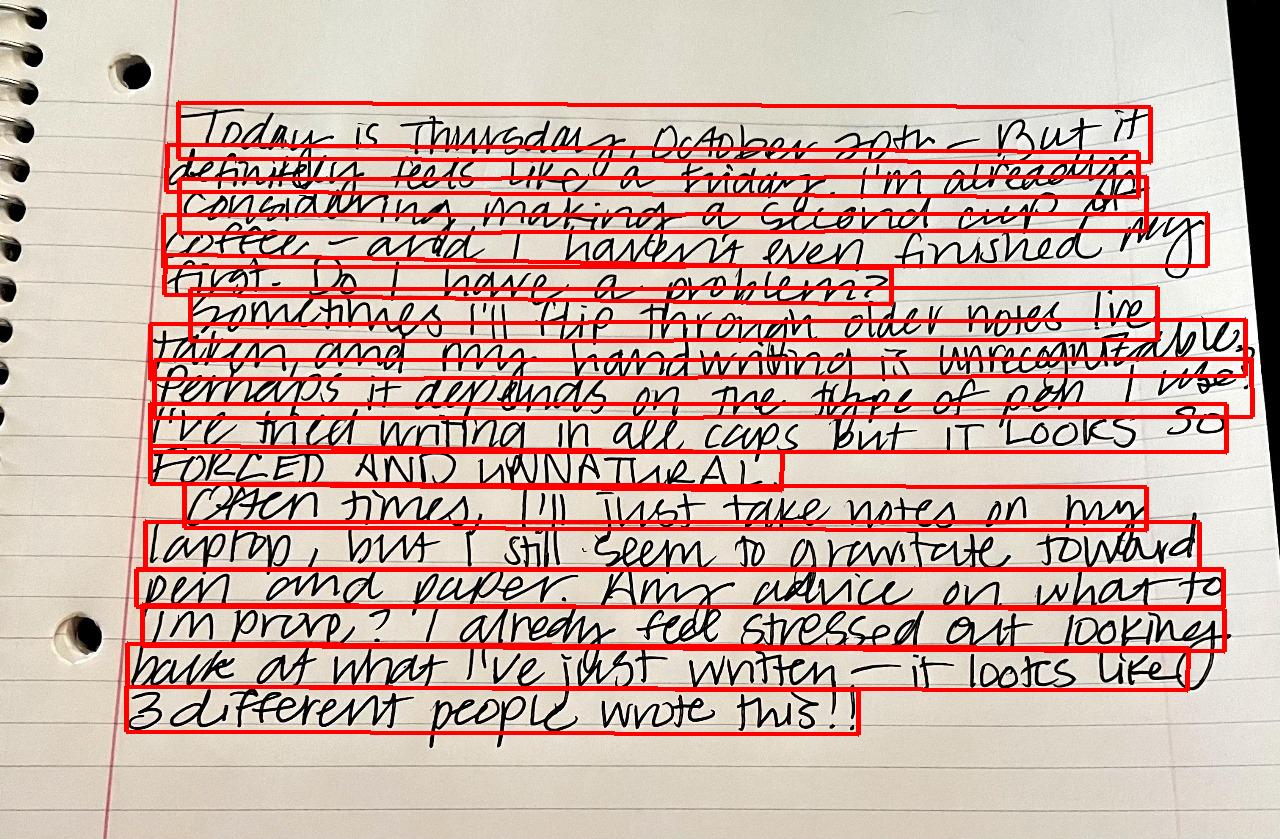 Today is Thursday, October 20th - But it
definitely feels like a Friday. I'm already
considering making a second cup of
coffee - and I haven't even finished my
first. Do I have a problem?
Sometimes I'll flip through older notes I've
taken, and my handwriting is unrecognizable.
Perhaps it depends on the type of pen I use!
I've tried writing in all caps But IT LOOKS SO
FORCED AND UNNATURAL.
Often times, I'll just take notes on my
laptop, but I still seem to gravitate toward
pen and paper. Any advice on what to
improve? I already feel stressed out looking
back at what I've just written - it looks like
3 different people wrote this!!